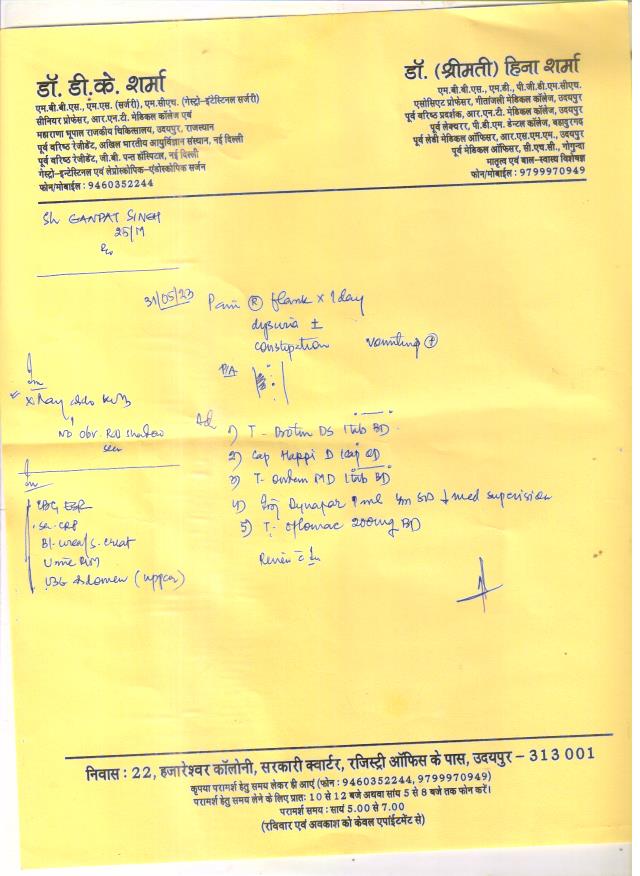 डॉ. डी.के. शर्मा
एम.बी.बी.एस., एम.एस. (सर्जरी), एम.सीएच. (गेस्ट्रो-इंटेस्टिनल सर्जरी)
सीनियर प्रोफेसर, आर.एन.टी. मेडिकल कॉलेज एवं
महाराणा भूपाल राजकीय चिकित्सालय, उदयपुर, राजस्थान
पूर्व वरिष्ठ रेजीडेंट, अखिल भारतीय आयुर्विज्ञान संस्थान, नई दिल्ली
पूर्व वरिष्ठ रेजीडेंट, जी.बी. पन्त हॉस्पिटल, नई दिल्ली
गेस्ट्रो-इन्टेस्टिनल एवं लेप्रोस्कोपिक-एंडोस्कोपिक सर्जन
फोन/मोबाईल : 9460352244
डॉ. (श्रीमती) हिना शर्मा
एम.बी.बी.एस., एम.डी., पी.जी.डी.एम.सीएच.
एसोसिएट प्रोफेसर, गीतांजली मेडिकल कॉलेज, उदयपुर
पूर्व वरिष्ठ प्रदर्शक, आर.एन.टी. मेडिकल कॉलेज, उदयपुर
पूर्व लेक्चरर, पी.डी.एम. डेन्टल कॉलेज, बहादुरगढ़
पूर्व लेडी मेडिकल ऑफिसर, आर.एस.एम.एम., उदयपुर
पूर्व मेडिकल ऑफिसर, सी.एच.सी., गोगुन्दा
मातृत्व एवं बाल-स्वास्थ्य विशेषज्ञ
फोन/मोबाईल : 9799970949
Sh GANPAT SINGH
25/M
31/05/23 Pain Ⓡ flank x 1 day
dysuria ±
constipation vomiting ⊕
P/A
Xray KUB
No obv. R/O shadow
seen
Ad
1) T- Brotin DS 1 tab BD
2) Cap Happi D 1 cap OD
3) T- Ondem MD 1 tab BD
4) Inj Dynapar 1 ml im ↓ med supervision
5) T- Oflomac 200mg BD
Review c̄
CBC ESR
Se. CRP
Bl. urea/S. creat
Urine R/M
USG Abdomen (upper)
निवास : 22, हजारेश्वर कॉलोनी, सरकारी क्वार्टर, रजिस्ट्री ऑफिस के पास, उदयपुर – 313 001
कृपया परामर्श हेतु समय लेकर ही आएं (फोन : 9460352244, 9799970949)
परामर्श हेतु समय लेने के लिए प्रातः 10 से 12 बजे अथवा सांय 5 से 8 बजे तक फोन करें।
परामर्श समय : सायं 5.00 से 7.00
(रविवार एवं अवकाश को केवल एपांईटमेंट से)